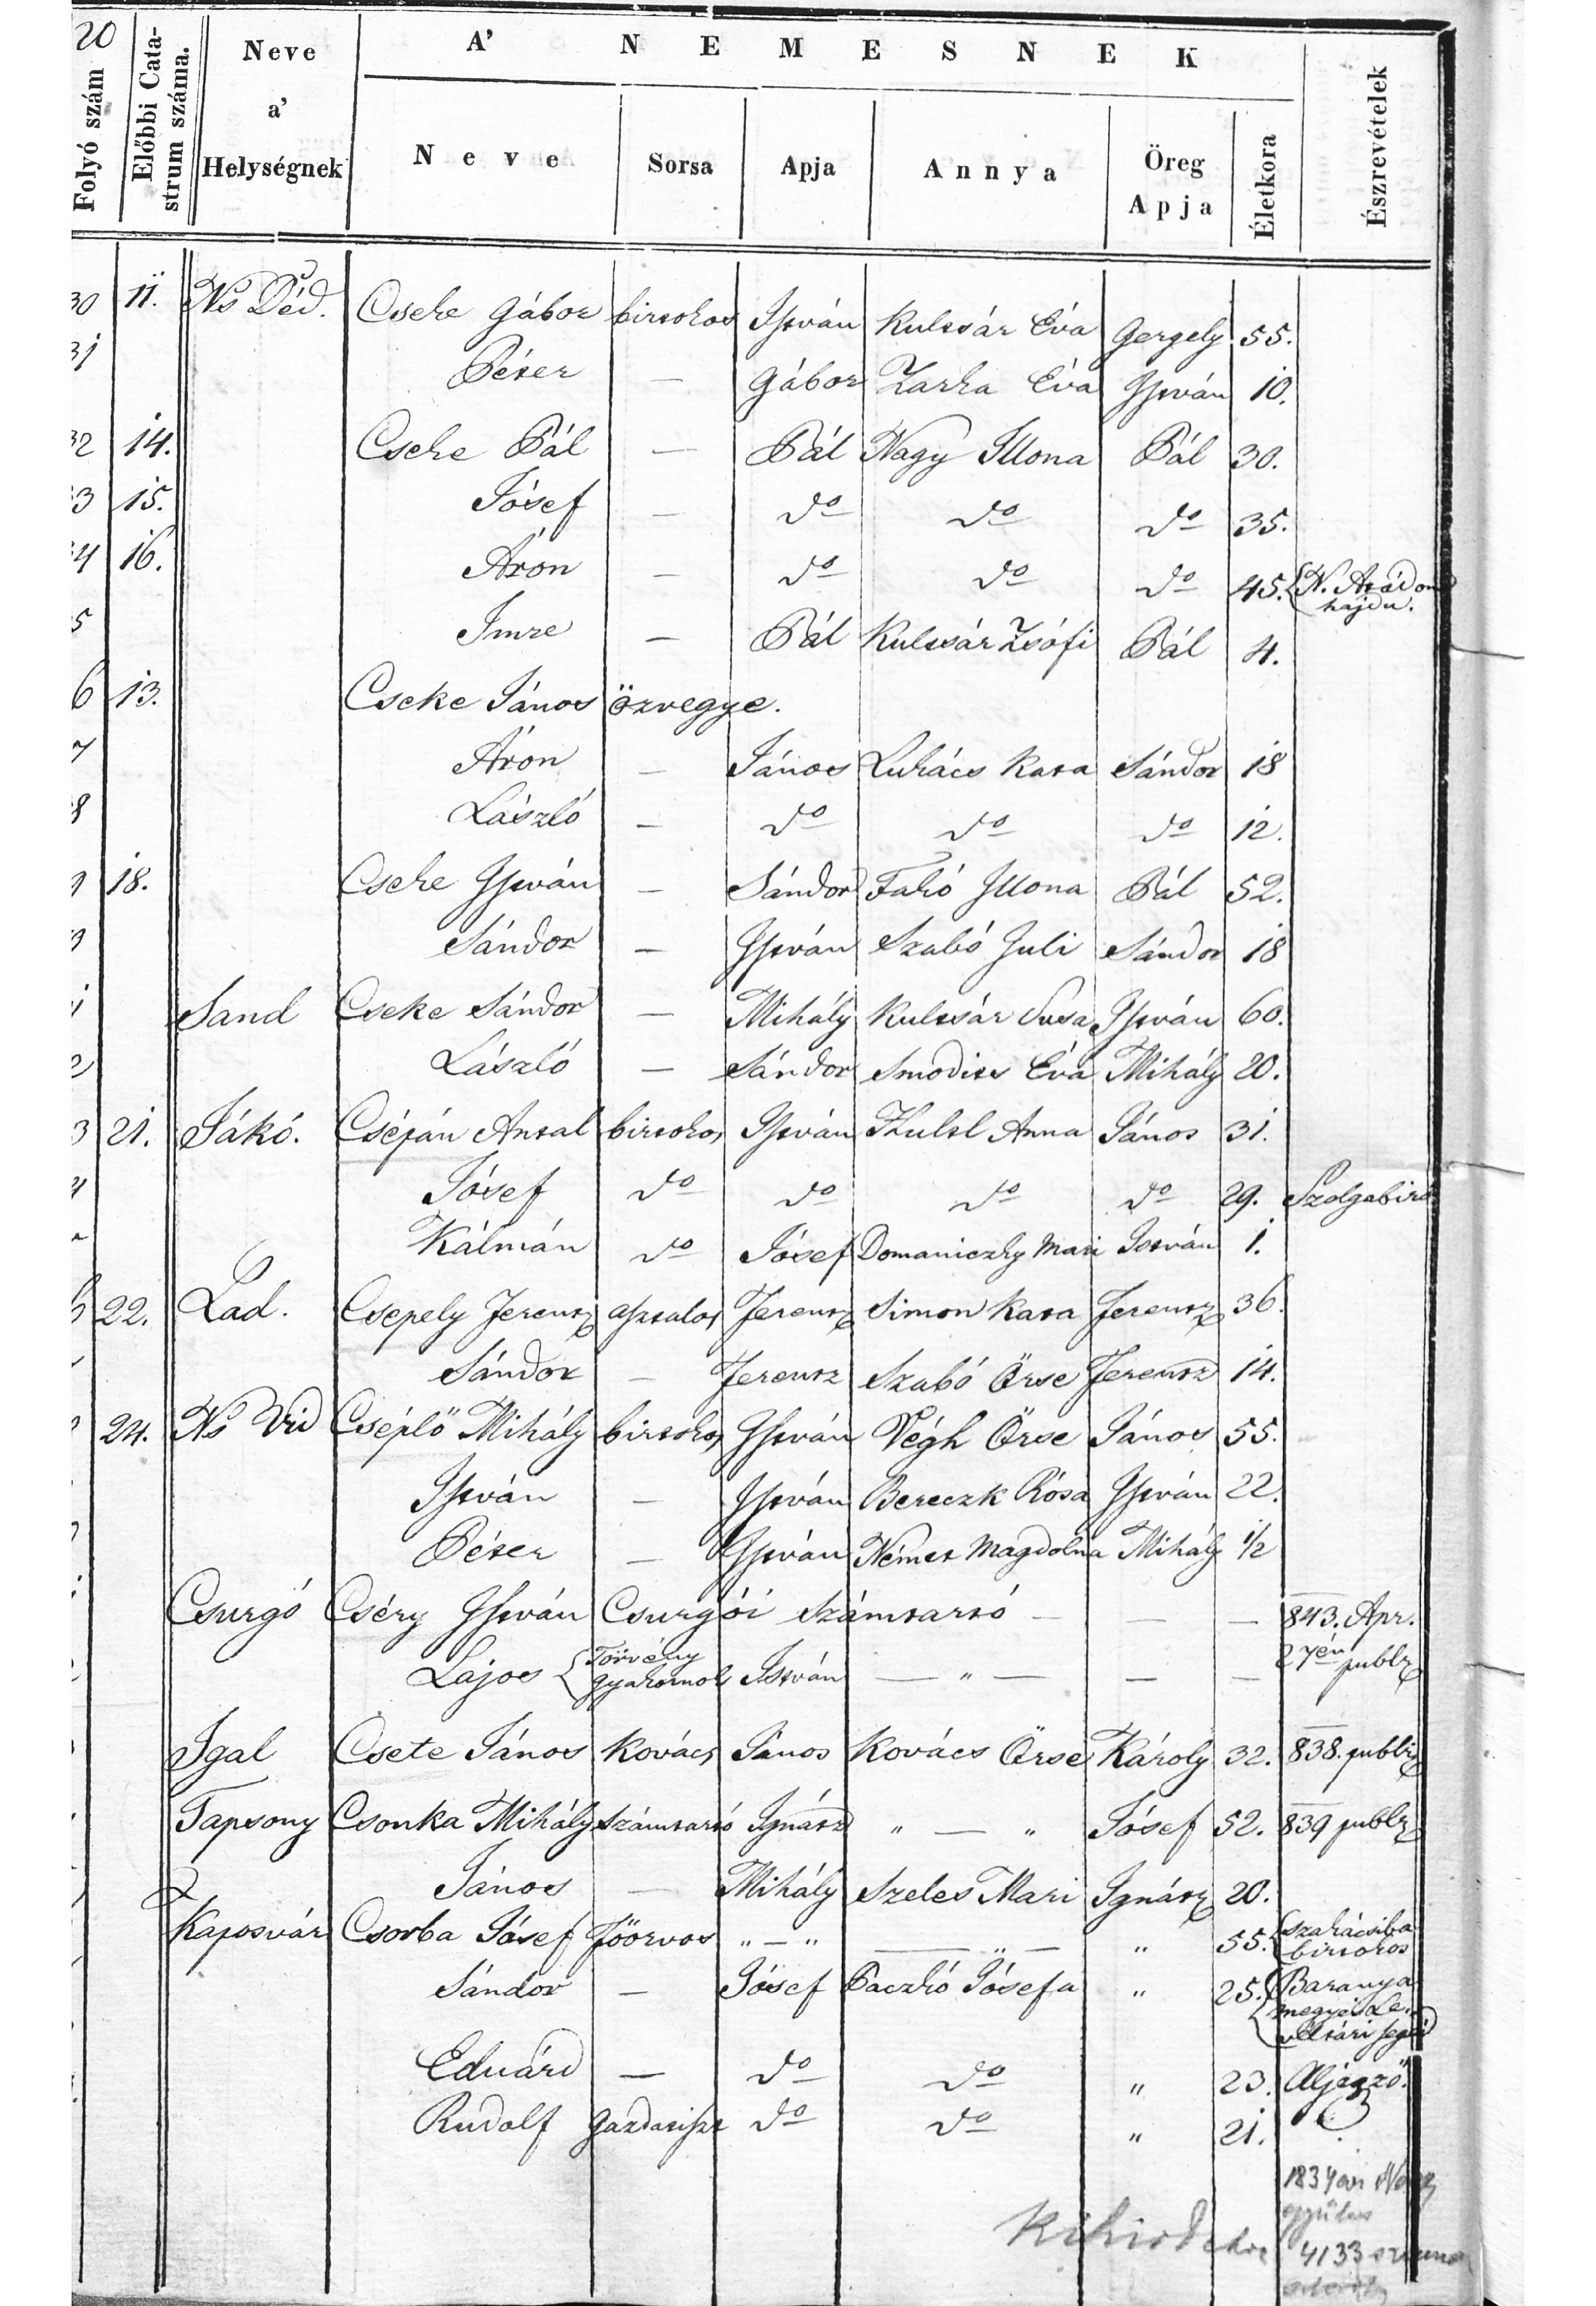 20
Folyó szám | Előbbi Catastrum száma. | Neve a' Helységnek | A' NEMESNEK | Észrevételek
Neve | Sorsa | Apja | Annya | Öreg Apja | Életkora
30 | 11. | Ns Déd. | Cseke Gábor | birtokos | István | Kulcsár Éva | Gergely | 55.
31 | Péter | — | Gábor | Zarka Éva | István | 10.
32 | 14. | Cseke Pál | — | Pál | Nagy Illona | Pál | 30.
3 | 15. | Jósef | — | do | do | do | 35.
4 | 16. | Áron | — | do | do | do | 45. | N. Arádon
hajdu.
5 | Imre | — | Pál | Kulcsár Zsófi | Pál | 4.
6 | 13. | Cseke János özvegye.
7 | Áron | — | János | Lukács Kata | Sándor | 18
8 | László | — | do | do | do | 12.
9 | 18. | Cseke István | — | Sándor | Fakó Illona | Pál | 52.
Sándor | — | István | Szabó Juli | Sándor | 18
1 | Sand | Cseke Sándor | — | Mihály | Kulcsár Susa | István | 60.
2 | László | — | Sándor | Smodics Éva | Mihály | 20.
3 | 21. | Jákó. | Csépán Antal | birtokos | István | Anna | János | 31.
4 | Jósef | do | do | do | do | 29. | Szolgabiró
Kálmán | do | Jósef | Domaniczky Mari | István | 1.
6 | 22. | Lad. | Csepely Ferencz | asztalos | Ferencz | Simon Kata | Ferencz | 36.
Sándor | — | Ferencz | Szabó Örse | Ferencz | 14.
24. | Ns Vid | Cséplő Mihály | birtokos | István | Végh Örse | János | 55.
István | — | István | Bereczk Rósa | István | 22.
Péter | — | István | Német Magdolna | Mihály | 1/2
Csurgó | Cséry István | Csurgói Számtartó | — | — | — | 843. Apr.
27én publz
Lajos | Törvény gyakornok | István | — " — | — | —
Igal | Csete János | Kovács | János | Kovács Örse | Károly | 32. | 838. publz
Tapsony | Csonka Mihály | Számtartó | Ignátz | " — " | Jósef | 52. | 839 publz
János | — | Mihály | Szeles Mari | Ignátz | 20.
Kaposvár | Csorba Jósef | Főorvos | " — " | — " — | " | 55. | Szakácsiba
birtokos
Sándor | — | Jósef | Paczkó Jósefa | " | 25. | Baranya
megyei Le-
véltári segéd
Eduárd | — | do | do | " | 23. | Aljegző.
Rudolf | Gazdatiszt | do | do | " | 21.
4133